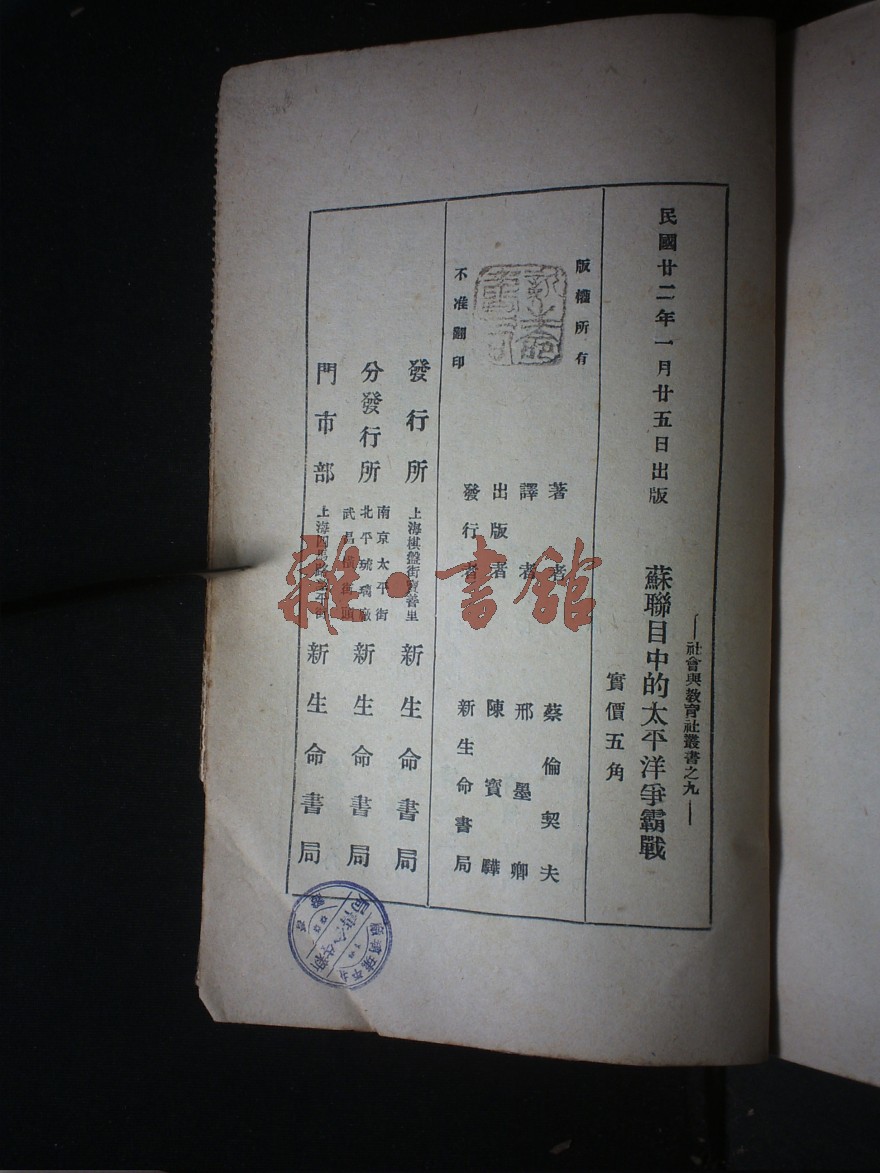 民國廿二年一月廿五日出版
——社會與教育社叢書之九——
蘇聯目中的太平洋爭霸戰
實價五角
版權所有
不准翻印
著者 蔡倫契夫
譯者 邢墨卿
出版者 陳寶驊
發行者 新生命書局
發行所 上海棋盤街寶善里 新生命書局
分發行所 南京太平街 北平琉璃廠 武昌橫街頭 新生命書局
門市部 上海四馬路 新生命書局
雜·書館